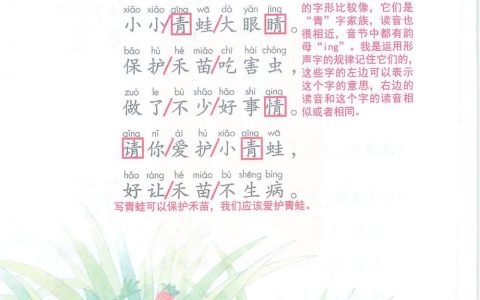 xiǎo xiǎo qīng wā dà yǎn jīng
小小青蛙/大眼睛。
bǎo hù hé miáo chī hài chóng
保护禾苗/吃害虫，
zuò le bù shǎo hǎo shì qing
做了/不少/好事情。
qǐng nǐ ài hù xiǎo qīng wā
请你/爱护/小青蛙，
hǎo ràng hé miáo bù shēng bìng
好让/禾苗/不生病。
写青蛙可以保护禾苗，我们应该爱护青蛙。
的字形比较像，它们是
“青”字家族，读音也
很相近，音节中都有韵
母“ing”。我是运用形
声字的规律记住它们的，
这些字的左边可以表示
这个字的意思，右边的
读音和这个字的读音相
似或者相同。